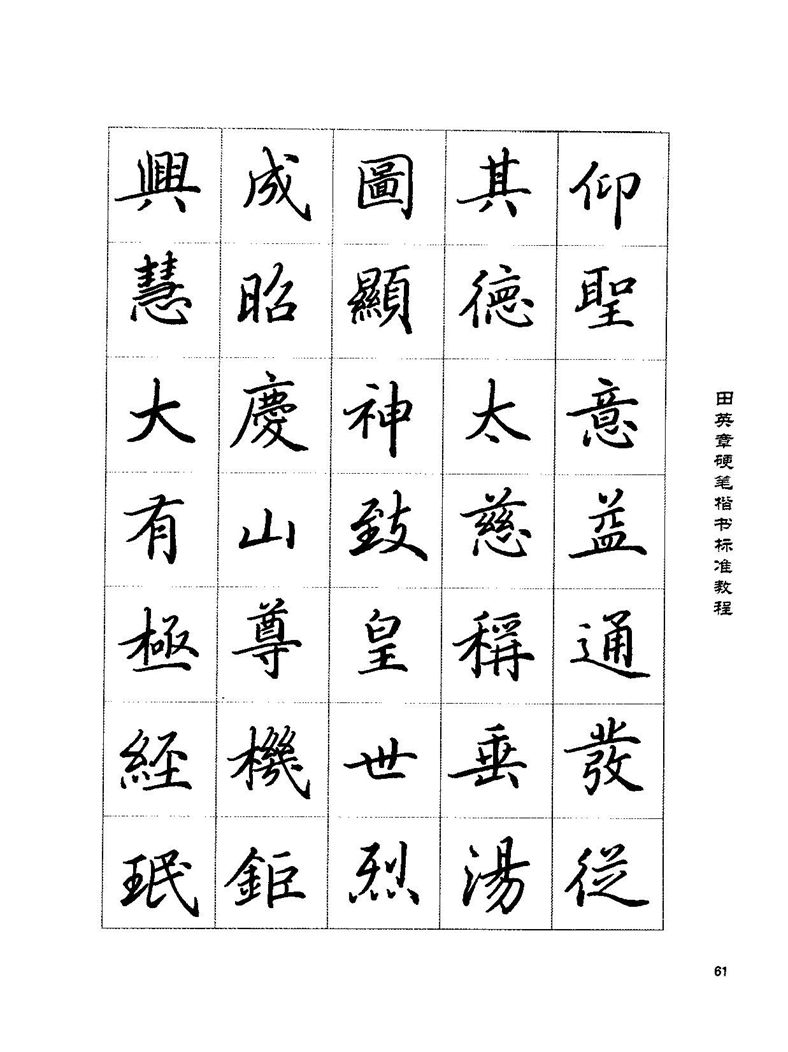 仰聖意益通發從
其德太慈稱垂湯
圖顯神致皇世烈
成昭慶山尊機鉅
興慧大有極經珉
田英章硬笔楷书标准教程
61